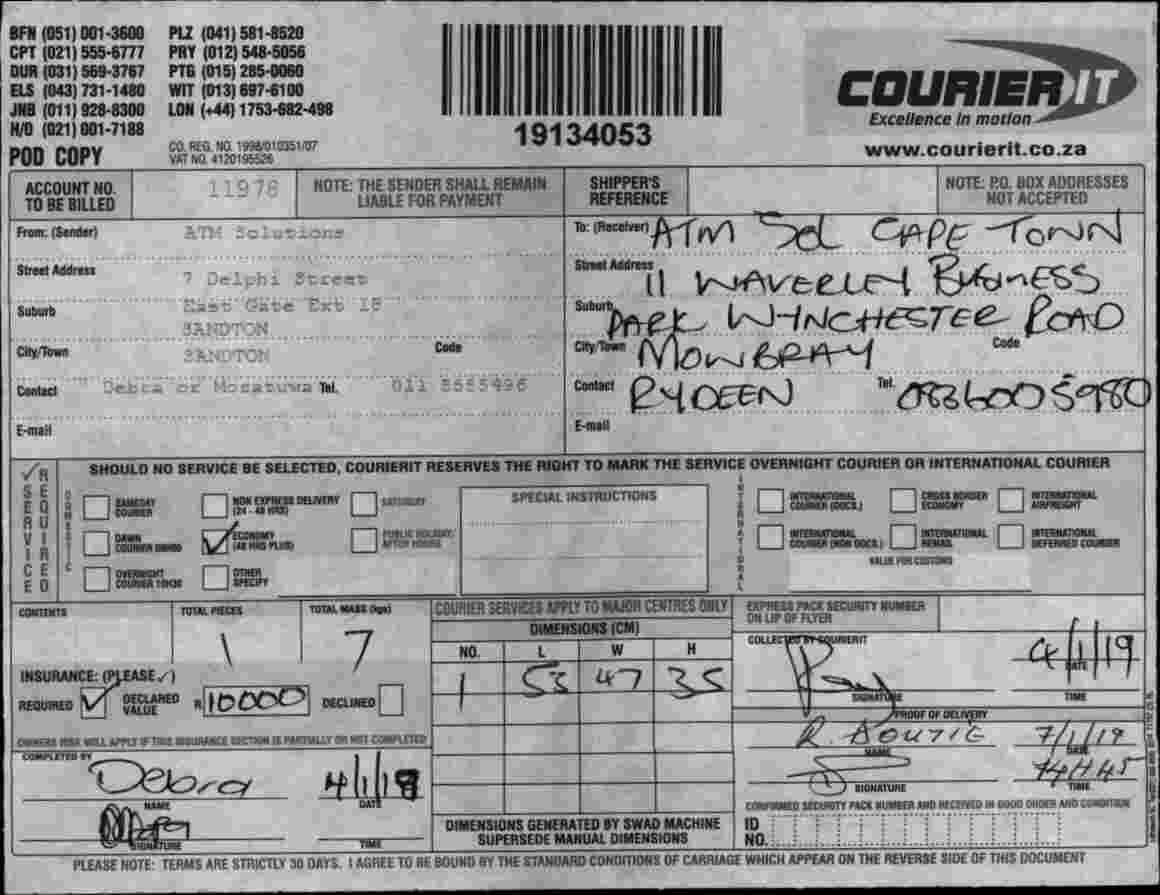 BFN (051) 001-3600 PLZ (041) 581-8520
CPT (021) 555-6777 PRY (012) 548-5056
DUR (031) 569-3767 PTG (015) 285-0060
ELS (043) 731-1480 WIT (013) 697-6100
JNB (011) 928-8300 LON (+44) 1753-682-498
H/O (021) 001-7188
POD COPY
CO. REG. NO. 1998/010351/07
VAT NO. 4120195526
19134053
COURIER IT
Excellence in motion
www.courierit.co.za
ACCOUNT NO. TO BE BILLED
11978
NOTE: THE SENDER SHALL REMAIN LIABLE FOR PAYMENT
SHIPPER'S REFERENCE
NOTE: P.O. BOX ADDRESSES NOT ACCEPTED
From: (Sender) ATM Solutions
Street Address 7 Delphi Street
Suburb East Gate Ext 18
SANDTON
City/Town SANDTON Code
Contact Debra or Mosatuwa Tel. 011 5555496
E-mail
To: (Receiver) ATM Sol CAPE TOWN
Street Address 11 WAVERLEY BUSINESS
Suburb PARK WYNCHESTER ROAD
City/Town MOWBRAY Code
Contact RYDEEN Tel. 0836005980
E-mail
✓ SERVICE REQUIRED
SHOULD NO SERVICE BE SELECTED, COURIERIT RESERVES THE RIGHT TO MARK THE SERVICE OVERNIGHT COURIER OR INTERNATIONAL COURIER
DOMESTIC
SAMEDAY COURIER
NON EXPRESS DELIVERY (24 - 48 HRS)
SATURDAY
DAWN COURIER 09H00
✓ ECONOMY (48 HRS PLUS)
PUBLIC HOLIDAY/ AFTER HOURS
OVERNIGHT COURIER 10H30
OTHER SPECIFY
SPECIAL INSTRUCTIONS
INTERNATIONAL
INTERNATIONAL COURIER (DOCS.)
CROSS BORDER ECONOMY
INTERNATIONAL AIRFREIGHT
INTERNATIONAL COURIER (NON DOCS.)
INTERNATIONAL REMAIL
INTERNATIONAL DEFERRED COURIER
VALUE FOR CUSTOMS
CONTENTS
TOTAL PIECES 1
TOTAL MASS (kgs) 7
INSURANCE: (PLEASE ✓)
REQUIRED ✓ DECLARED VALUE R 10000 DECLINED
OWNERS RISK WILL APPLY IF THIS INSURANCE SECTION IS PARTIALLY OR NOT COMPLETED
COMPLETED BY
Debra 4/1/19
NAME DATE
SIGNATURE TIME
COURIER SERVICES APPLY TO MAJOR CENTRES ONLY
DIMENSIONS (CM)
NO. L W H
1 53 47 35
DIMENSIONS GENERATED BY SWAD MACHINE SUPERSEDE MANUAL DIMENSIONS
EXPRESS PACK SECURITY NUMBER ON LIP OF FLYER
COLLECTED BY COURIERIT
4/1/19
DATE
SIGNATURE TIME
PROOF OF DELIVERY
R. ADUTIE 7/1/19
NAME DATE
14H45
SIGNATURE TIME
CONFIRMED SECURITY PACK NUMBER AND RECEIVED IN GOOD ORDER AND CONDITION
ID NO.
PLEASE NOTE: TERMS ARE STRICTLY 30 DAYS. I AGREE TO BE BOUND BY THE STANDARD CONDITIONS OF CARRIAGE WHICH APPEAR ON THE REVERSE SIDE OF THIS DOCUMENT